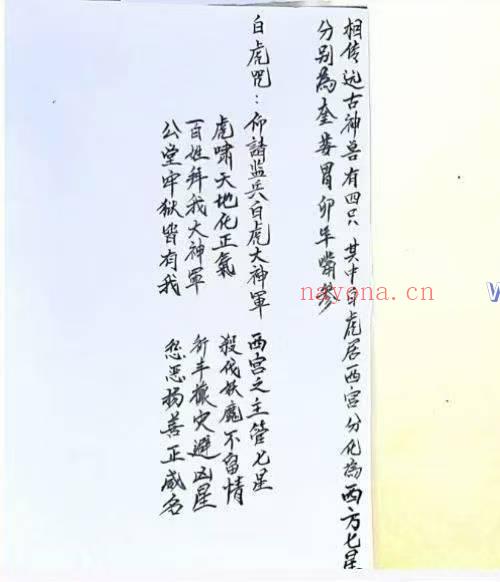 相传远古神兽有四只 其中白虎居西宫分化為西方七星
分别為奎娄胃卯毕嘴参
白虎咒：仰請监兵白虎大神軍 西宫之主管七星
虎嘯天地化正氣 殺伐妖魔不留情
百姓拜我大神軍 行丰禳灾避凶星
公堂牢狱皆有我 惩恶扬善正威名
nayona.cn